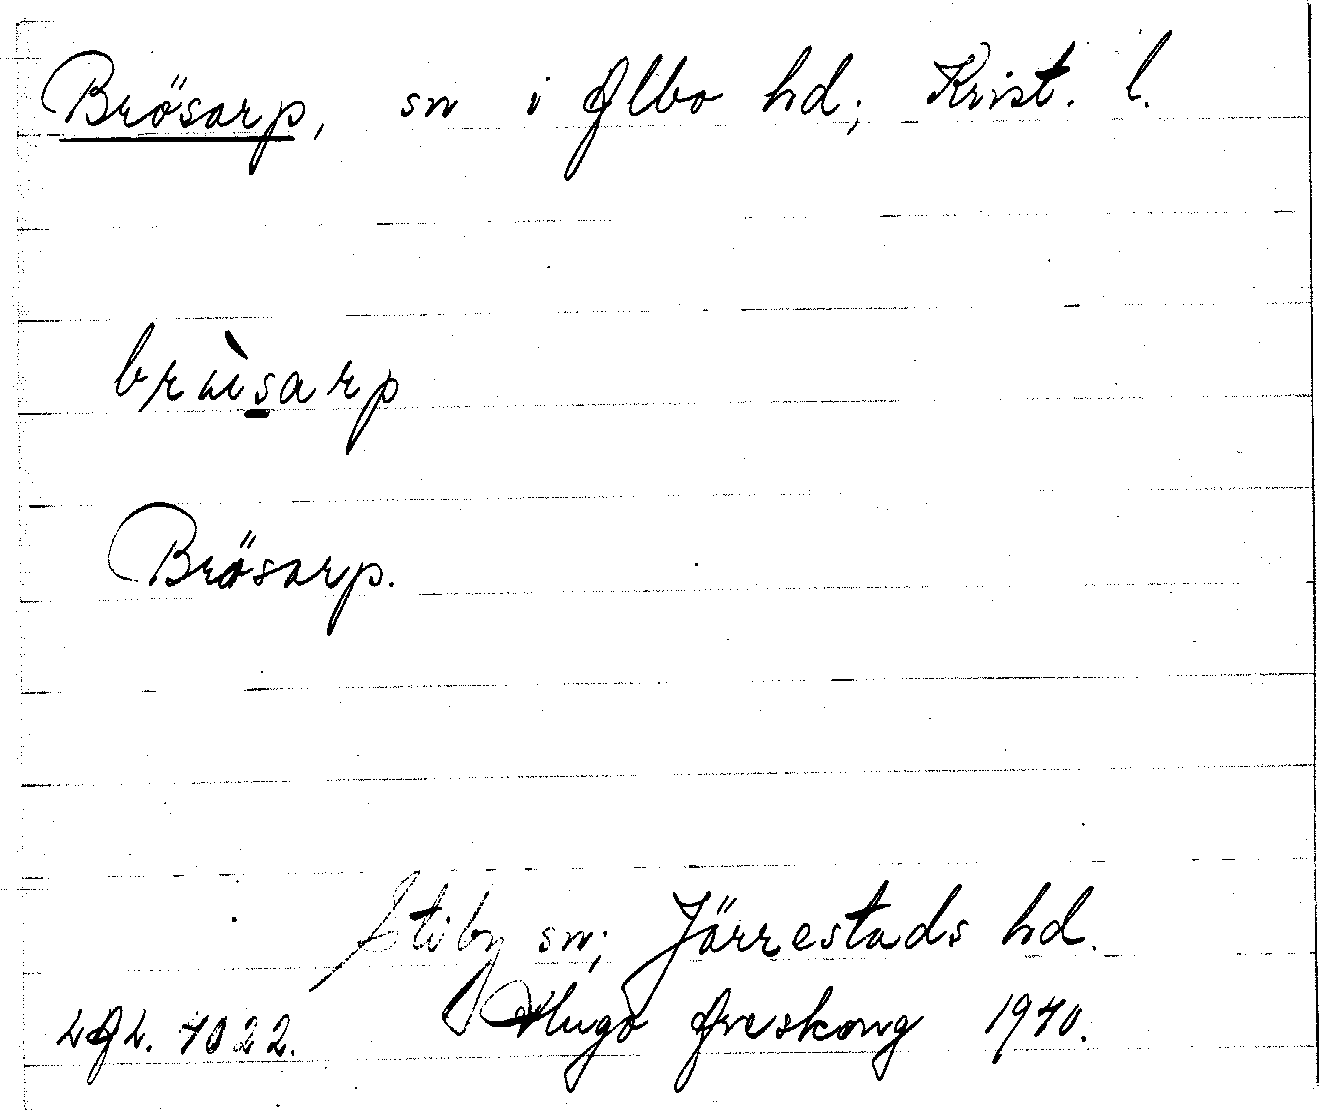 Brösarp, sn i Albo hd; Krist. l.
brùsarp
Brösarp.
Stiby sn; Järrestads hd.
LAL. 4022. Hugo Areskoug 1940.